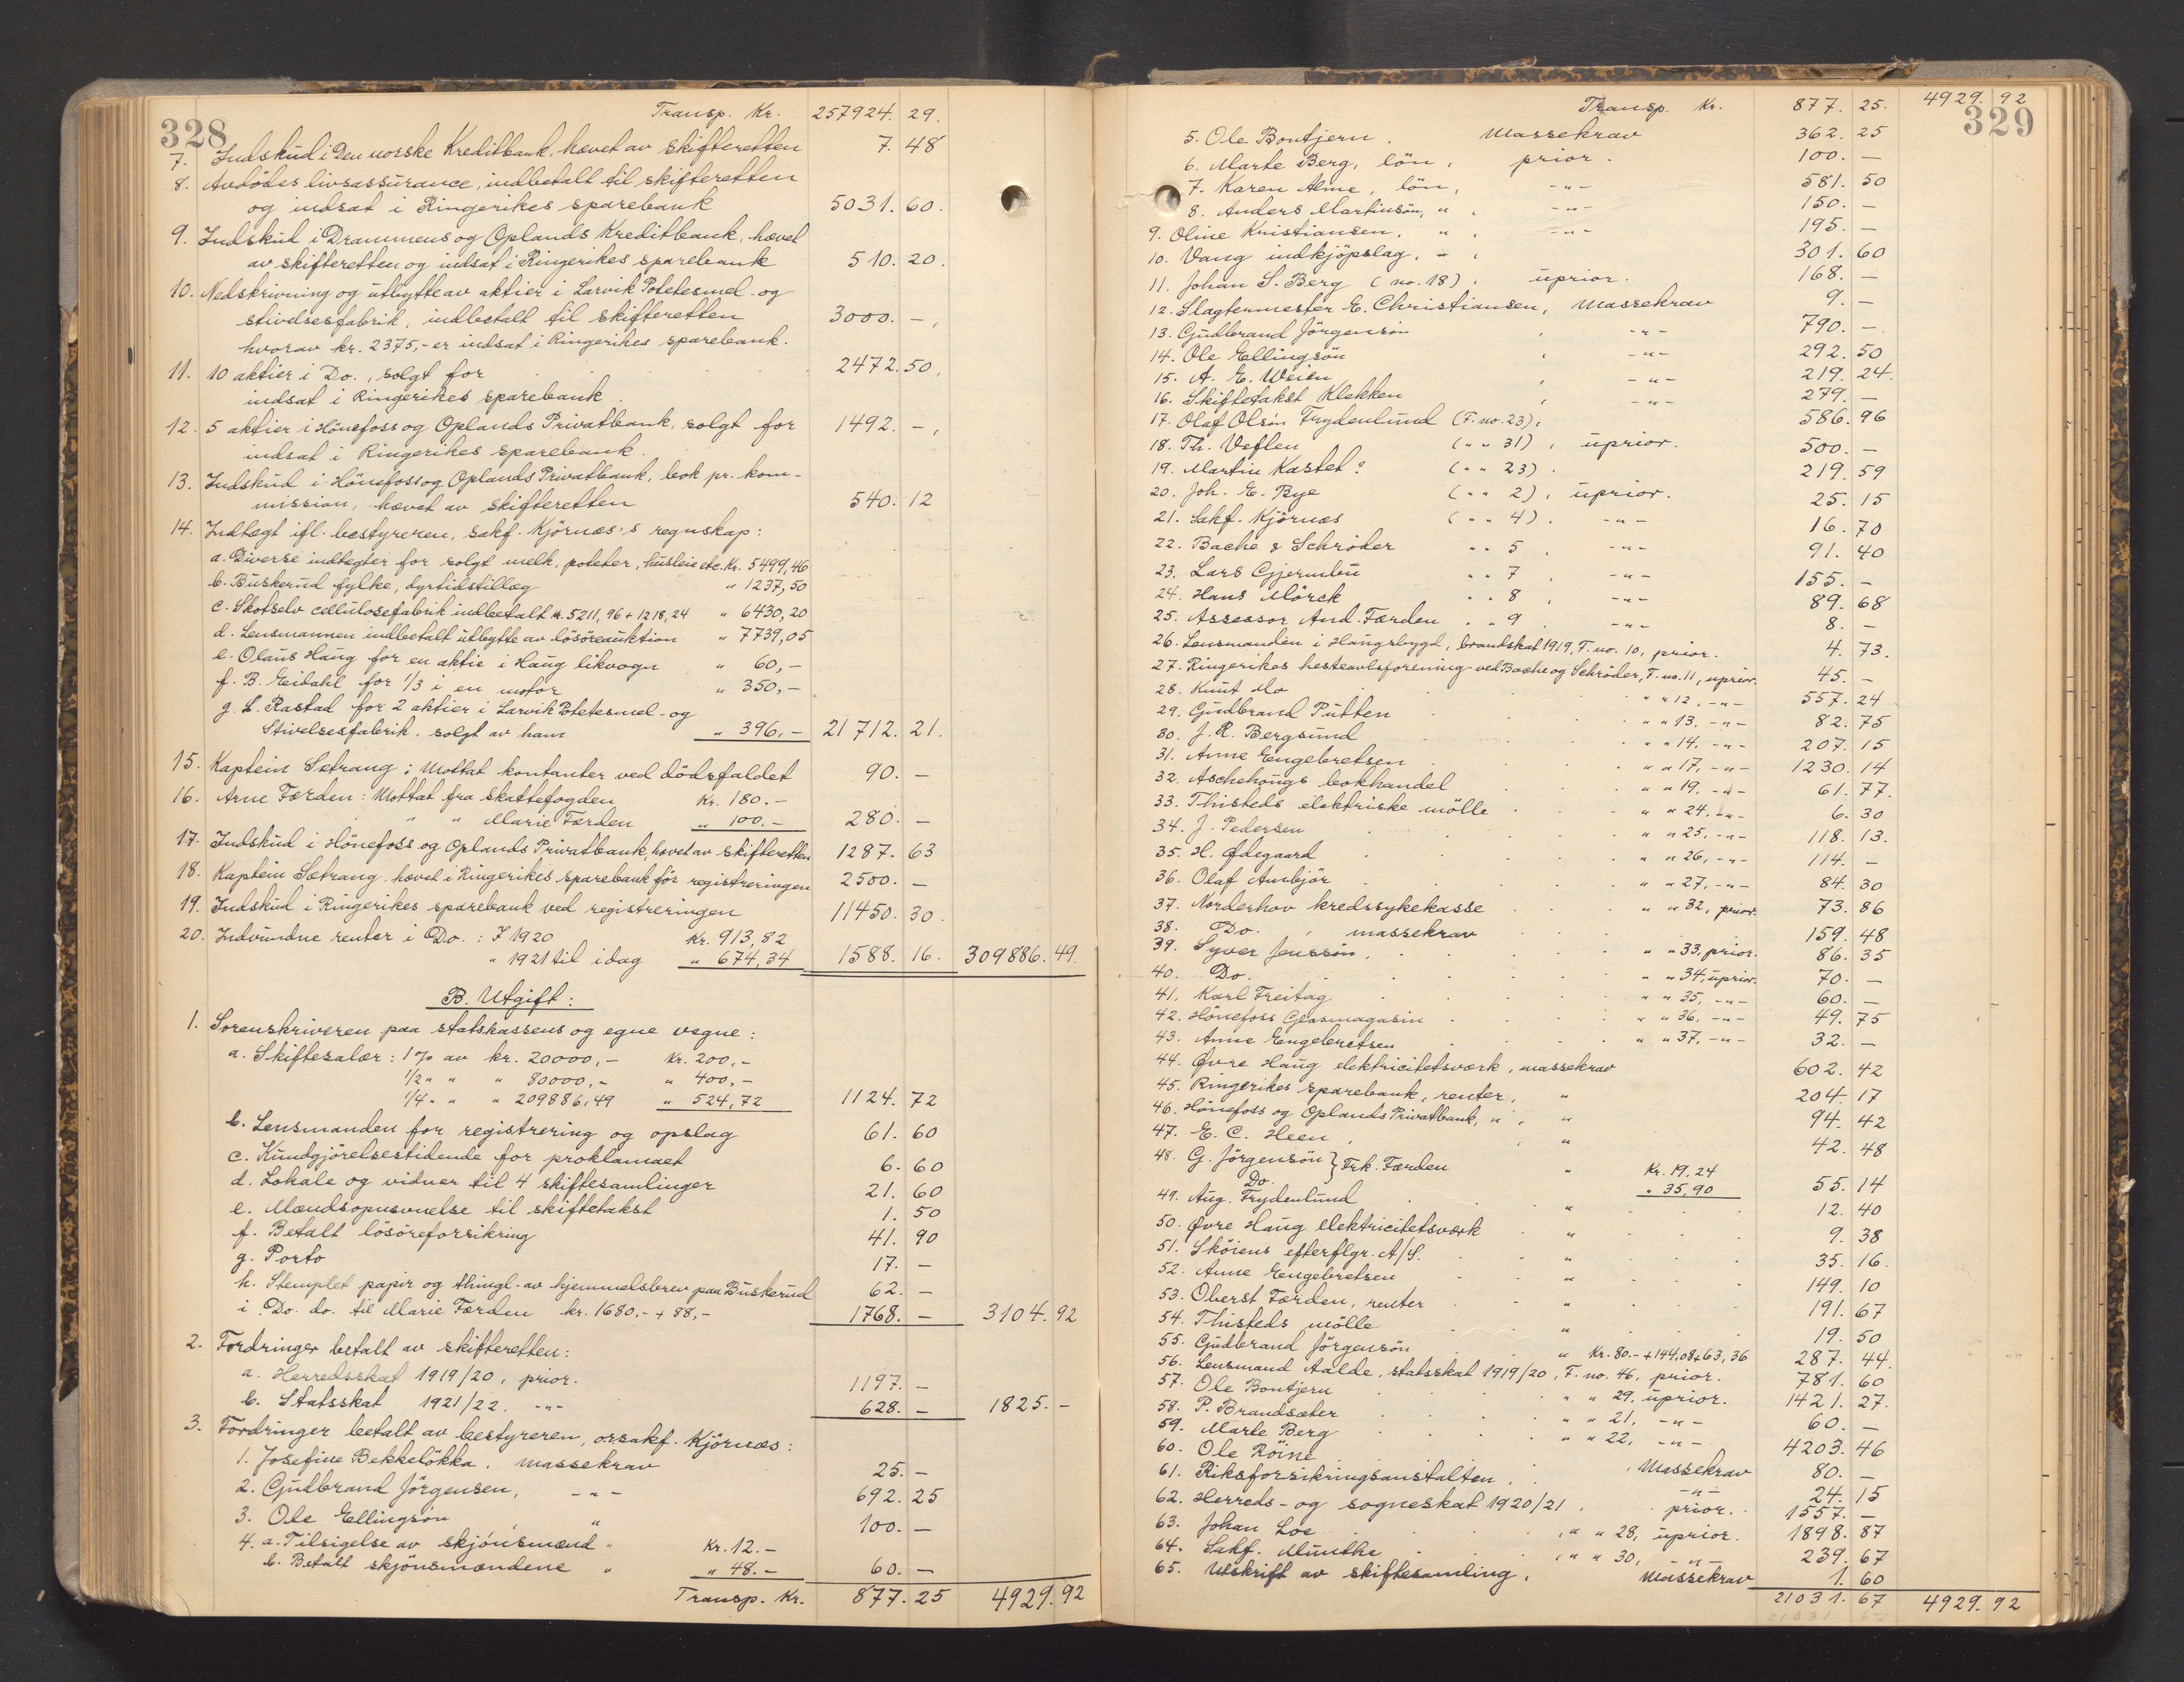 328
Transp. Kr. 257924. 29.
7. Indskud i Den norske Kreditbank, hævet av skifteretten 7. 48
8. Avdödes livsassurance, indbetalt til skifteretten
og indsat i Ringerikes sparebank 5031. 60.
9. Indskud i Drammens og Oplands Kreditbank, hævet
av skifteretten og indsat i Ringerikes sparebank 510. 20.
10. Nedskrivning og utbytte av aktier i Larvik Potetesmel- og
stivelsesfabrik, indbetalt til skifteretten 3000. -,
hvorav kr. 2375,- er indsat i Ringerikes sparebank.
11. 10 aktier i Do., solgt for 2472. 50,
indsat i Ringerikes sparebank.
12. 5 aktier i Hönefoss og Oplands Privatbank, solgt for 1492. -,
indsat i Ringerikes sparebank.
13. Indskud i Hönefoss og Oplands Privatbank, bok pr. kom-
mission, hævet av skifteretten 540. 12
14. Indtægt ifl. bestyreren, sakf. Kjörnæs's regnskap:
a. Diverse indtægter for solgt melk, poteter, husleie etc. Kr. 5499,46
b. Buskerud fylke, dyrtidstillæg " 1237,50
c. Skotselv cellulosefabrik indbetalt kr. 5211,96 + 1218,24 " 6430,20
d. Lensmannen indbetalt utbytte av lösöreauktion " 7739,05
e. Olaus Haug for en aktie i Haug likvogn " 60,-
f. B. Eidahl for 1/3 i en motor " 350,-
g. L. Rastad for 2 aktier i Larvik Potetesmel- og
Stivelsesfabrik, solgt av ham " 396,- 21712. 21.
15. Kaptein Setrang: Mottat kontanter ved dödsfaldet 90. -
16. Arne Færden: Mottat fra skattefogden Kr. 180.-
" " Marie Færden " 100.- 280. -
17. Indskud i Hönefoss og Oplands Privatbank, hævet av skifteretten 1287. 63
18. Kaptein Sætrang, hævet i Ringerikes sparebank för registreringen 2500. -
19. Indskud i Ringerikes sparebank ved registreringen 11450. 30.
20. Indvundne renter i Do.: I 1920 Kr. 913,82
" 1921 til idag " 674,34 1588. 16. 309886. 49.
B. Utgift:
1. Sorenskriveren paa statskassens og egne vegne:
a. Skiftesalær: 1% av kr. 20000,- Kr. 200,-
1/2 " " " 80000,- " 400,-
1/4 " " " 209886,49 " 524,72 1124. 72
b. Lensmanden for registrering og opslag 61. 60
c. Kundgjörelsestidende for proklamaet 6. 60
d. Lokale og vidner til 4 skiftesamlinger 21. 60
e. Mændsopnævnelse til skiftetakst 1. 50
f. Betalt lösöreforsikring 41. 90
g. Porto 17. -
h. Stemplet papir og thingl. av hjemmelsbrev paa Buskerud 62. -
i. Do. do. til Marie Færden kr. 1680.- + 88,- 1768. - 3104. 92
2. Fordringer betalt av skifteretten:
a. Herredsskat 1919/20, prior. 1197. -
b. Statsskat 1921/22, -"- 628. - 1825. -
3. Fordringer betalt av bestyreren, o.r.sakf. Kjörnæs:
1. Josefine Bekkelökka, massekrav 25. -
2. Gudbrand Jörgensen, -"- 692. 25
3. Ole Ellingsön " 100. -
4. a. Tilsigelse av skjönsmænd " Kr. 12.-
b. Betalt skjönsmændene " " 48.- 60. -
Transp. Kr. 877. 25 4929. 92
329
Transp. Kr. 877. 25. 4929. 92
5. Ole Bontjern, Massekrav 362. 25
6. Marte Berg, lön, prior. 100. -
7. Karen Alme, lön, -"- 581. 50
8. Anders Martinsön, " , -"- 150. -
9. Oline Kristiansen, " , -"- 195. -
10. Vang indkjöpslag, - , 301. 60
11. Johan S. Berg (no. 18), uprior. 168. -
12. Slagtermester E. Christiansen, Massekrav 9. -
13. Gudbrand Jörgensön , -"- 790. -
14. Ole Ellingsön , -"- 292. 50
15. A. E. Weien , -"- 219. 24.
16. Skiftetakst Klekken , -"- 279. -
17. Olaf Olsön Frydenlund (F. no. 23), 586. 96
18. Th. Veflen (" " 31), uprior. 500. -
19. Martin Kastet? (" " 23). 219. 59
20. Joh. E. Bye (" " 2), uprior. 25. 15
21. Sakf. Kjörnæs (" " 4). -"- 16. 70
22. Bache & Schröder " " 5, -"- 91. 40
23. Lars Gjermbu " " 7, -"- 155. -
24. Hans Mörck " " 8, -"- 89. 68
25. Assessor And. Færden " " 9, -"- 8. -
26. Lensmanden i Haugsbygd, brandskat 1919, F. no. 10, prior. 4. 73.
27. Ringerikes hesteavlsforening ved Bache og Schröder, F. no. 11, uprior. 45. -
28. Knut Mo " " 12, -"- 557. 24
29. Gudbrand Putten " " 13, -"- 82. 75
30. J. R. Bergsund " " 14, -"- 207. 15
31. Anne Engebretsen " " 17, -"- 1230. 14
32. Aschehougs bokhandel " " 19, -"- 61. 77.
33. Thisteds elektriske mölle " " 24, -"- 6. 30
34. J. Pedersen " " 25, -"- 118. 13.
35. H. Ødegaard " " 26, -"- 114. -
36. Olaf Aubjör " " 27, -"- 84. 30
37. Norderhov kredssykekasse " " 32, prior. 73. 86
38. Do. , massekrav 159. 48
39. Syver Jenssön, " " 33, prior. 86. 35
40. Do. " " 34, uprior. 70. -
41. Karl Freitag " " 35, -"- 60. -
42. Hönefoss Glasmagasin " " 36, -"- 49. 75
43. Anne Engebretsen " " 37, -"- 32. -
44. Øvre Haug elektricitetsværk, massekrav 602. 42
45. Ringerikes sparebank, renter, " 204. 17
46. Hönefoss og Oplands Privatbank, " , " 94. 42
47. E. C. Heen , , " 42. 48
48. G. Jörgensön } Frk. Færden " Kr. 19.24
Do. " 35,90 55. 14
49. Aug. Frydenlund " 12. 40
50. Øvre Haug elektricitetsværk " 9. 38
51. Sköiens efterflgr. A/S. " 35. 16.
52. Anne Engebretsen " 149. 10
53. Oberst Færden, renter " 191. 67
54. Thisteds mölle " 19. 50
55. Gudbrand Jörgensön " Kr. 80.- + 144,08 + 63,36 287. 44.
56. Lensmand Aalde, statsskat 1919/20, F. no. 46, prior. 781. 60
57. Ole Bontjern " " 29, uprior. 1421. 27.
58. P. Brandsæter " " 21, -"- 60. -
59. Marte Berg " " 22, -"- 4203. 46
60. Ole Röine , Massekrav 80. -
61. Riksforsikringsanstalten -"- 24. 15
62. Herreds- og sogneskat 1920/21 prior. 1557. -
63. Johan Loe , " " 28, uprior. 1898. 87
64. Sakf. Munthe , " " 30, -"- 239. 67
65. Utskrift av skiftesamling, Massekrav 1. 60
21031. 67 4929. 92